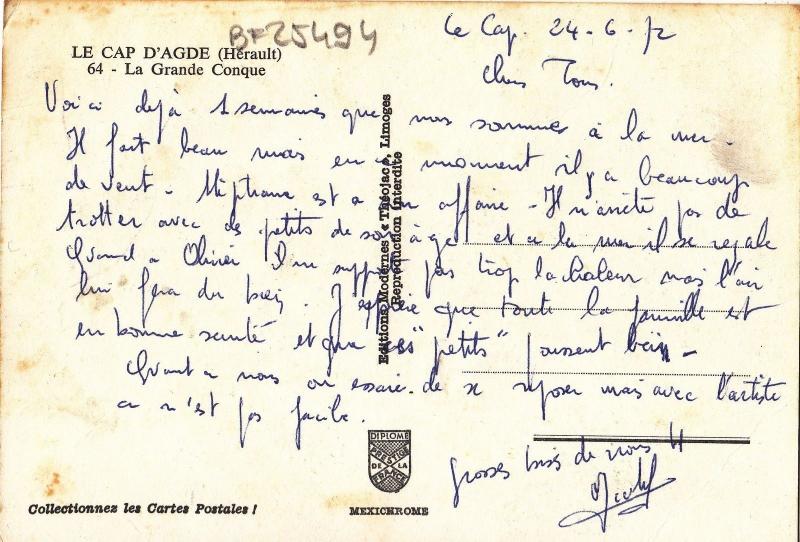 BF25494
LE CAP D'AGDE (Hérault)
64 - La Grande Conque
Le Cap. 24-6-72
Chers Tous.
Voici déjà 1 semaines que nous sommes à la mer.
Il fait beau mais en ce moment il y a beaucoup
de vent. Stéphane est a son affaire - Il n'arrête pas de
trotter avec des petits de son âge et a la mer il se regale
Quand a Olivier I ne supporte pas trop la chaleur mais l'air
lui fera du bien. J'espère que toute la famille est
en bonne santé et que les "petits" poussent bien -
Quant a nous on essaie de se reposer mais avec l'artiste
ce n'est pas facile.
Grosses bises de nous 4
Editions Modernes « Théojac », Limoges
Reproduction interdite
DIPLOME
PRESTIGE
DE LA
FRANCE
Collectionnez les Cartes Postales !
MEXICHROME